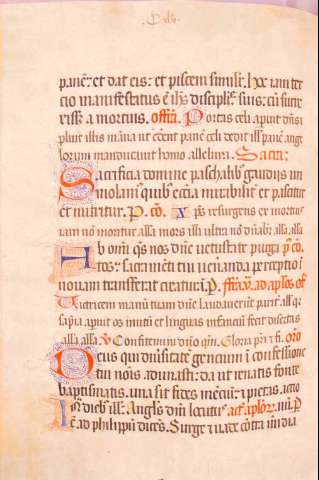 panē: et dat eis: et piscem simil'r. hoc iam ter
cio manifestatus ē ih̄s discipl'is suis: cū surre
xiss; a mortuis. Portas celi apuit dn̄s
pluit illis māna ut edent panē celi dedit ill' panē ange
lorum manducauit homo alleluya. Sacra:
Sacrificia domine paschalib; gaudiis im
molam' quib; ecclīa mirabilit' et pascitur
et nutritur. P. cō. xp̄s resurgens ex mortuis
iam nō moritur alla mors illi ultra nō dn̄abit' alla. alla
Ab omī q̄s dn̄e uetustate purga p. cō.
tos: sacramēti tui ueneranda perceptio ī
nouam transferat creaturā. ad aplōs
Uictricem manū tuam dn̄e laudauerūt parit' alla q̄
sapīa apuit os mutū et linguas infanciū fecit disertas
alla. alla. V Confitemini dn̄o qm̄. Gloria p̄ri orō
Deus qui diūsitatē gencium ī confessione
tui nōis adunasti: da ut renatis fonte
baptismatis. una sit fides mēciū: & pietas actio
In dieb; ill'. Angl's dn̄i locutus act. aplor;. P
ē ad philippū dicēs. Surge & uade cōtra